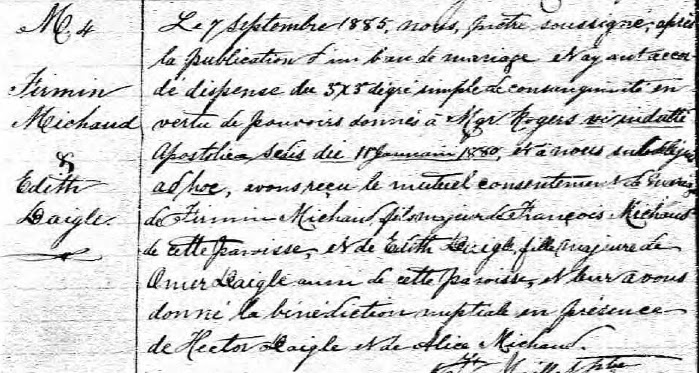 M. 4
Firmin
Michaud
&
Edith
Daigle.
Le 7 septembre 1885, nous, prêtre soussigné, après
la publication d'un ban de mariage et ayant accor
dé dispense du 3x3 degré simple de consanguinité en
vertu de pouvoirs donnés à Mgr Rogers vi indulti
Apostolica sedis die 11 Januarii 1880, et à nous
ad hoc, avons reçu le mutuel consentement de mariage
de Firmin Michaud fils majeur de François Michaud
de cette paroisse, et de Edith Daigle, fille majeure de
Omer Daigle aussi de cette paroisse, et leur avons
donné la bénédiction nuptiale en présence
de Hector Daigle et de Alice Michaud.
Ptre